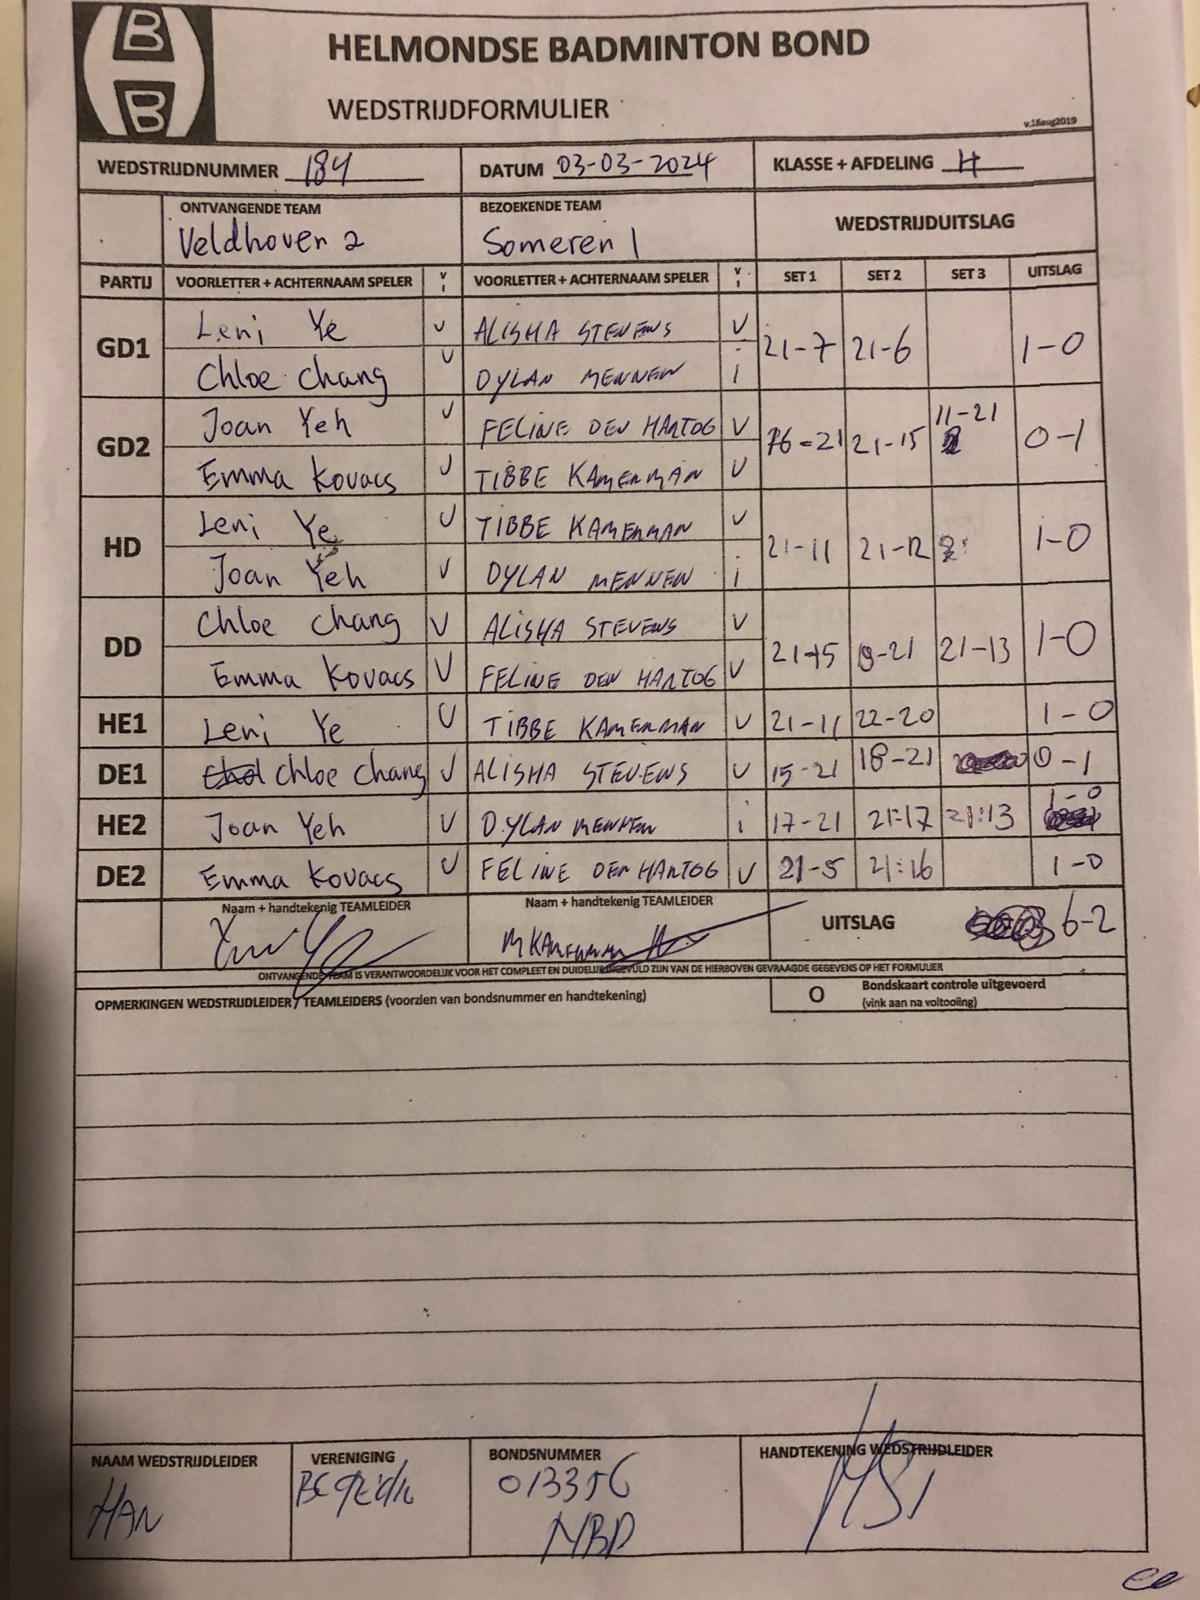 B
B
HELMONDSE BADMINTON BOND
WEDSTRIJDFORMULIER
v.18aug2019
WEDSTRIJDNUMMER 184 DATUM 03-03-2024 KLASSE + AFDELING H
ONTVANGENDE TEAM BEZOEKENDE TEAM WEDSTRIJDUITSLAG
Veldhoven 2 Someren 1
PARTIJ VOORLETTER + ACHTERNAAM SPELER V I VOORLETTER + ACHTERNAAM SPELER V I SET 1 SET 2 SET 3 UITSLAG
GD1 Leni Ye V ALISHA STEVENS V 21-7 21-6 1-0
Chloe Chang V DYLAN MENNEN i
GD2 Joan Yeh V FELINE DEN HARTOG V 16-21 21-15 11-21 0-1
Emma Kovacs V TIBBE KAMERMAN V
HD Leni Ye V TIBBE KAMERMAN V 21-11 21-12 1-0
Joan Yeh V DYLAN MENNEN i
DD Chloe Chang V ALISHA STEVENS V 21-15 19-21 21-13 1-0
Emma Kovacs V FELINE DEN HARTOG V
HE1 Leni Ye V TIBBE KAMERMAN V 21-11 22-20 1-0
DE1 Chloe Chang V ALISHA STEVENS V 15-21 18-21 0-1
HE2 Joan Yeh V DYLAN MENNEN i 17-21 21:17 21:13 1-0
DE2 Emma Kovacs V FELINE DEN HARTOG V 21-5 21:16 1-0
Naam + handtekenig TEAMLEIDER Naam + handtekenig TEAMLEIDER UITSLAG 6-2
M KAMERMAN
ONTVANGENDE TEAM IS VERANTWOORDELIJK VOOR HET COMPLEET EN DUIDELIJK INGEVULD ZIJN VAN DE HIERBOVEN GEVRAAGDE GEGEVENS OP HET FORMULIER
OPMERKINGEN WEDSTRIJDLEIDER / TEAMLEIDERS (voorzien van bondsnummer en handtekening) O Bondskaart controle uitgevoerd
(vink aan na voltooiing)
NAAM WEDSTRIJDLEIDER VERENIGING BONDSNUMMER HANDTEKENING WEDSTRIJDLEIDER
HAN BC 013356